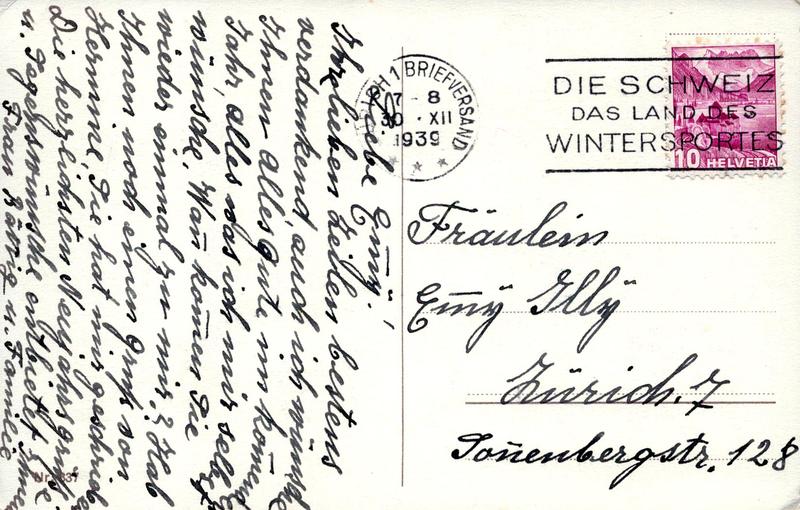 Liebe Emÿ!
Ihre lieben Zeilen bestens
verdankend, auch ich wünsche
Ihnen alles gute im komend
Jahr, alles was ich mir selber
wünsche, Wan̄ kom̄en Sie
wieder einmal zu mir? Hab
Ihnen noch einen Gruß von
Hermine, Sie hat mir geschrieben
Die herzlichsten Neujahrsgrüße
u. Segenswünsche entbietet Ihnen
Frau Bättig u. Familie
1 BRIEFVERSAND
30. XII
1939
DIE SCHWEIZ
DAS LAND DES
WINTERSPORTES
10 HELVETIA
Fräulein
Em̄ÿ Illÿ
Zürich. 7
Son̄enbergstr. 128